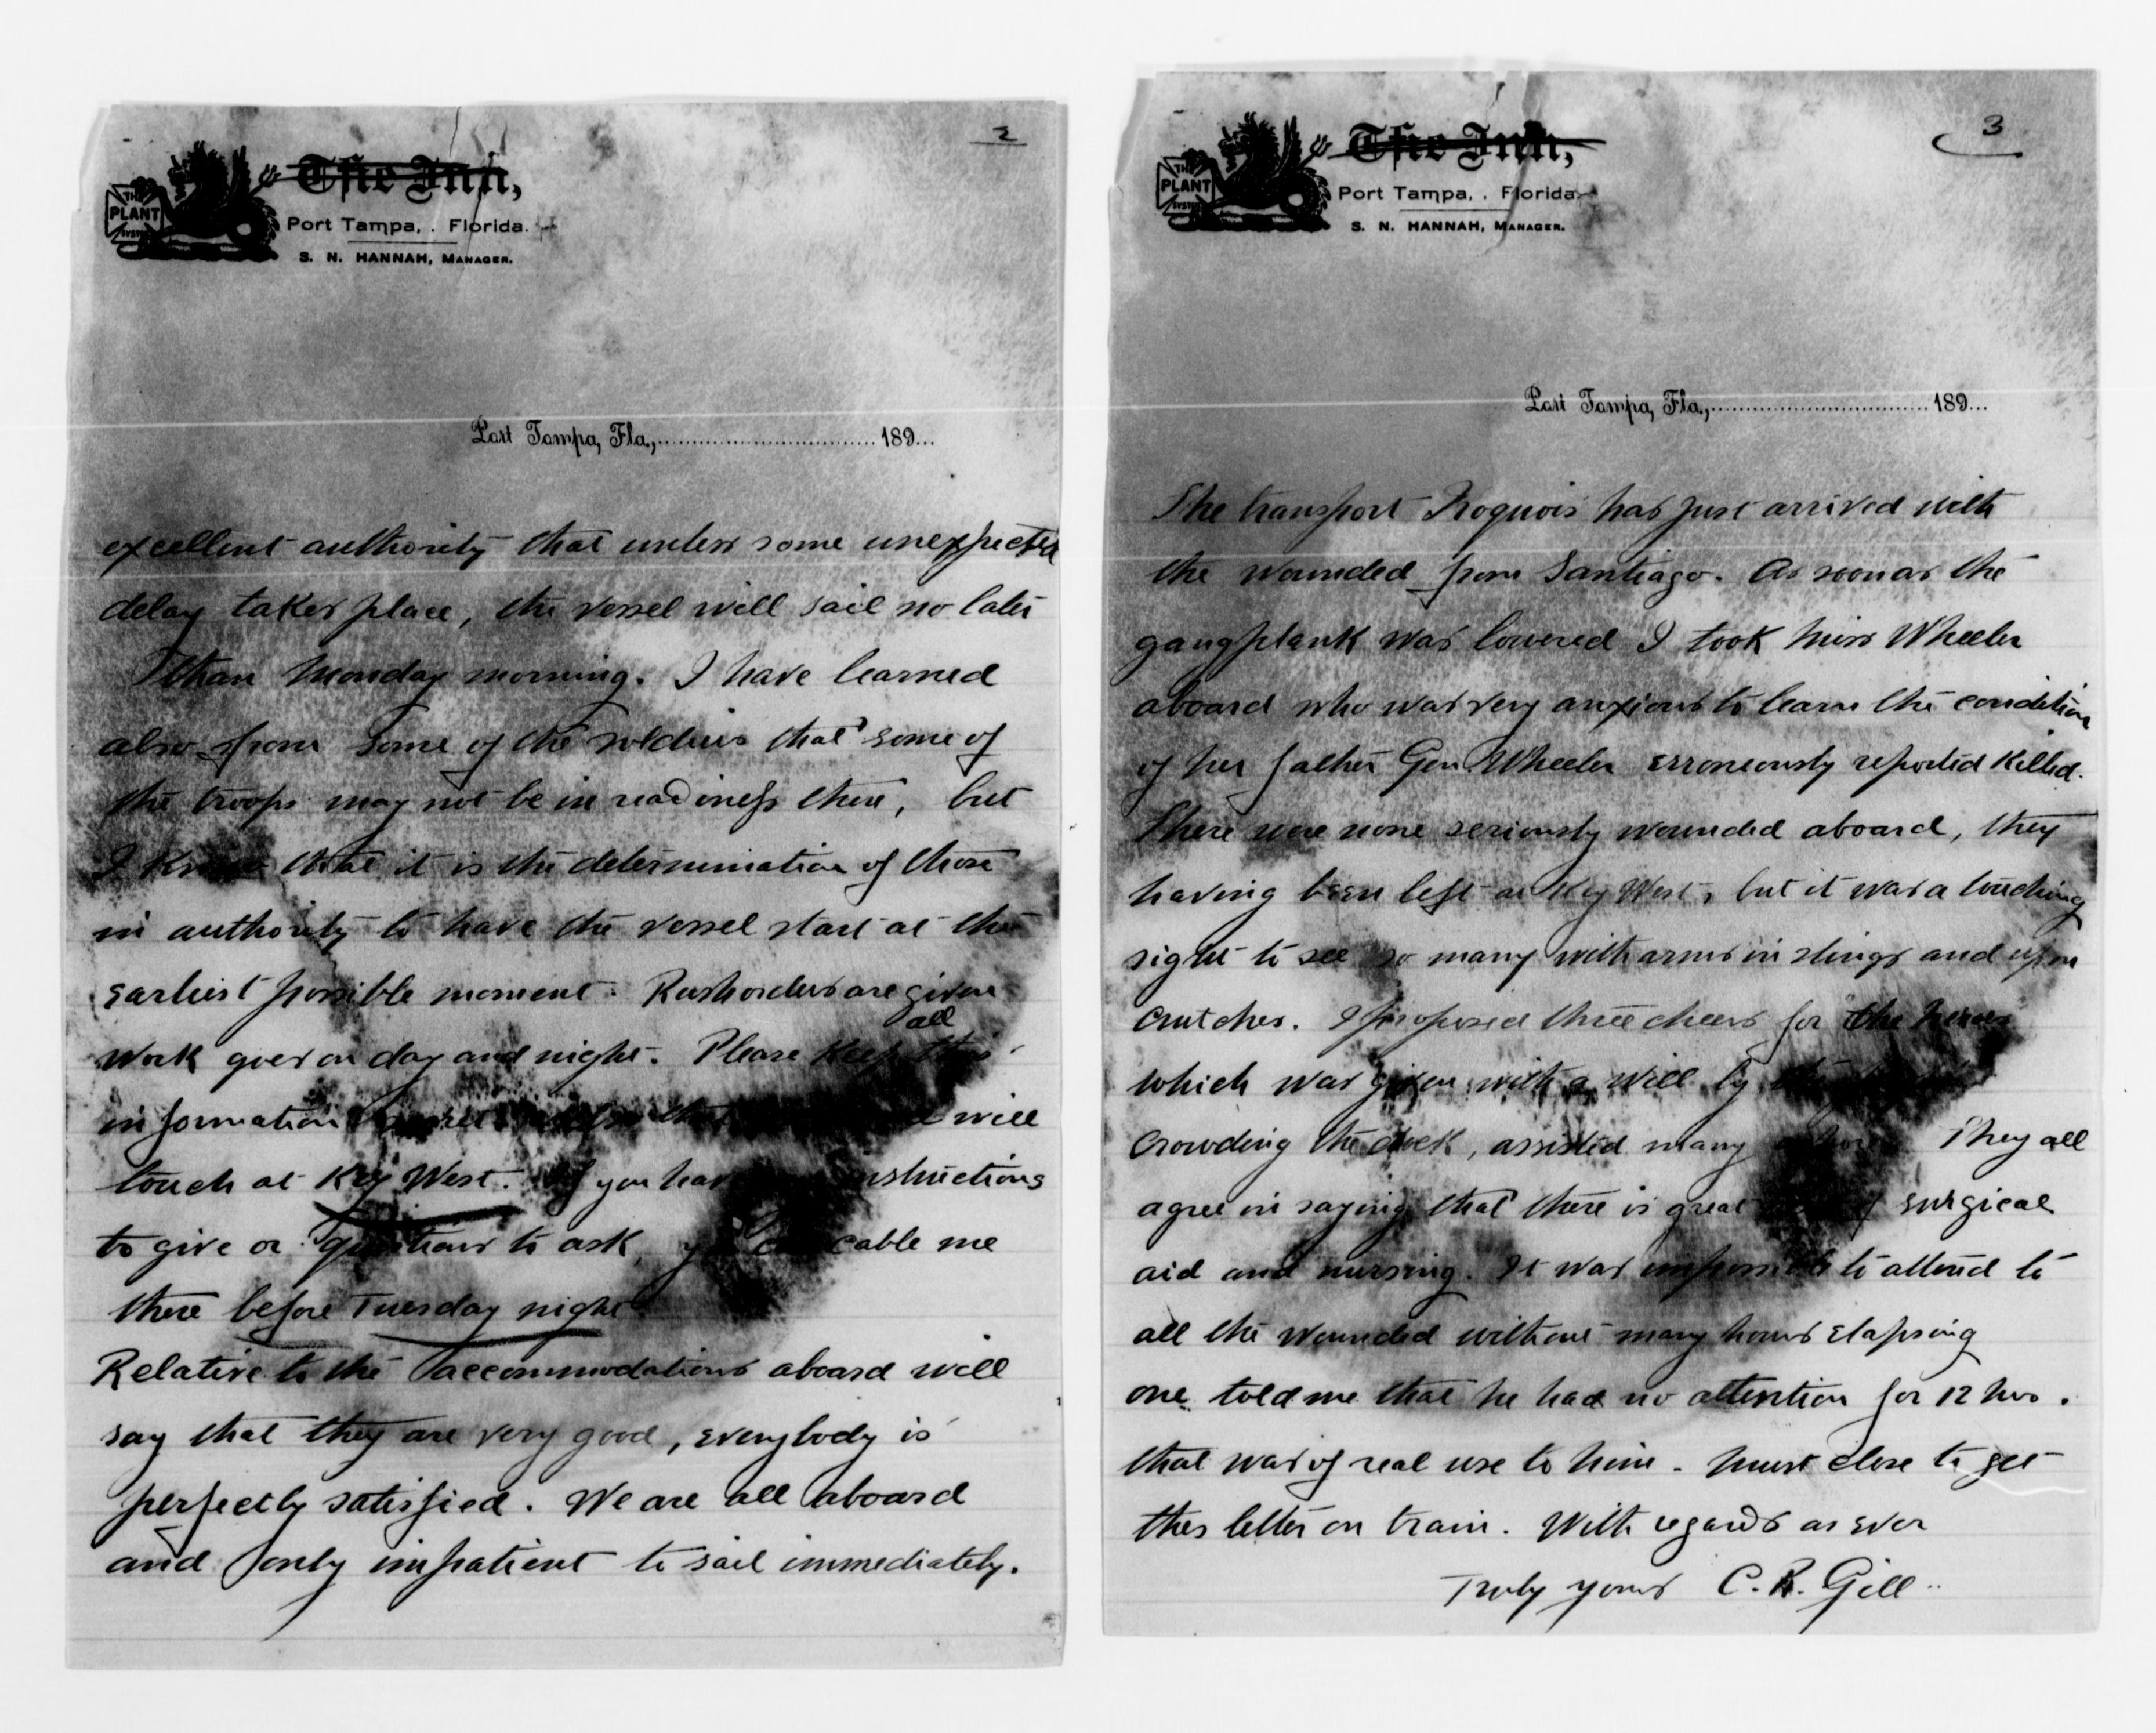 2
THE
PLANT
SYSTEM
The Inn,
Port Tampa, . Florida.
S. N. HANNAH, MANAGER.
Port Tampa, Fla., 189...
excellent authority that unless some unexpected
delay takes place, the vessel will sail no later
than Monday morning. I have learned
also from some of the soldiers that some of
the troops may not be in readiness then, but
I know that it is the determination of those
in authority to have the vessel start at the
earliest possible moment. Rush orders are given
all
work goes on day and night. Please keep this
information secret will
touch at Key West. If you have instructions
to give or questions to ask, you can cable me
there before Tuesday night.
Relative to the accommodations aboard will
say that they are very good, everybody is
perfectly satisfied. We are all aboard
and only impatient to sail immediately.
3
THE
PLANT
SYSTEM
The Inn,
Port Tampa, . Florida.
S. N. HANNAH, MANAGER.
Port Tampa, Fla., 189...
The transport Iroquois has just arrived with
the wounded from Santiago. As soon as the
gangplank was lowered I took Miss Wheeler
aboard who was very anxious to learn the condition
of her father Gen. Wheeler erroneously reported killed.
There were none seriously wounded aboard, they
having been left at Key West, but it was a touching
sight to see so many with arms in slings and upon
crutches. I proposed three cheers for "the heroes"
which was given with a will by
crowding the dock, assisted many They all
agree in saying that there is great of surgical
aid and nursing. It was impossible to attend to
all the wounded without many hours elapsing
one told me that he had no attention for 12 hrs.
that was of real use to him. Must close to get
this letter on train. With regards as ever
Truly yours C. R. Gill